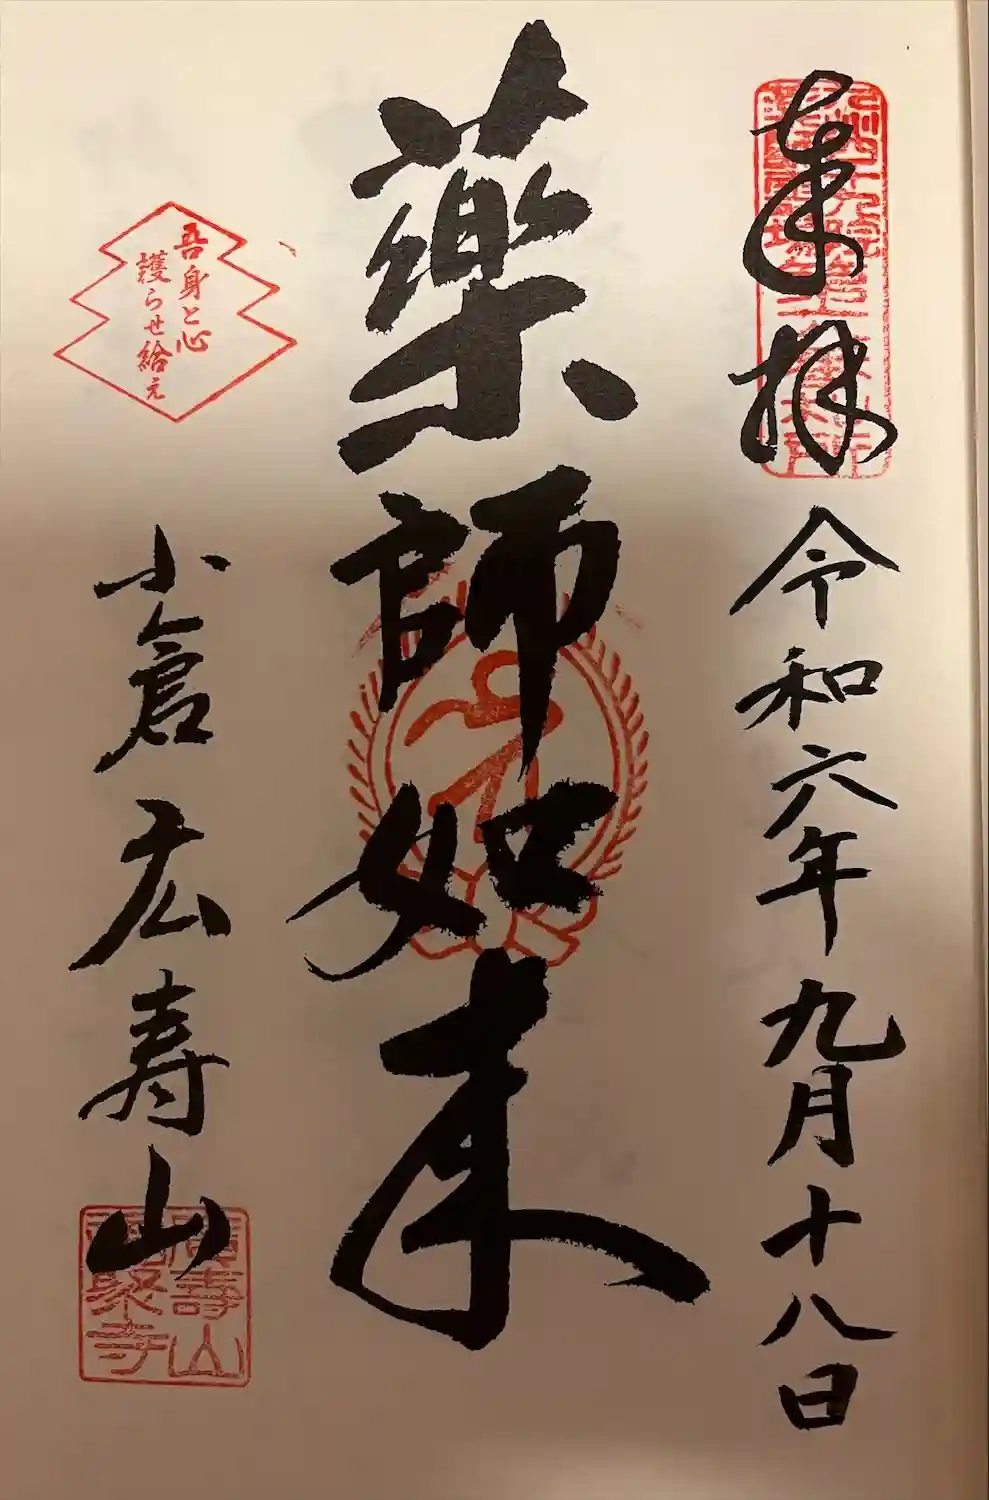 奉拝
令和六年九月十八日
薬師如来
吾身と心
護らせ給え
小倉広寿山
廣壽山
福聚寺